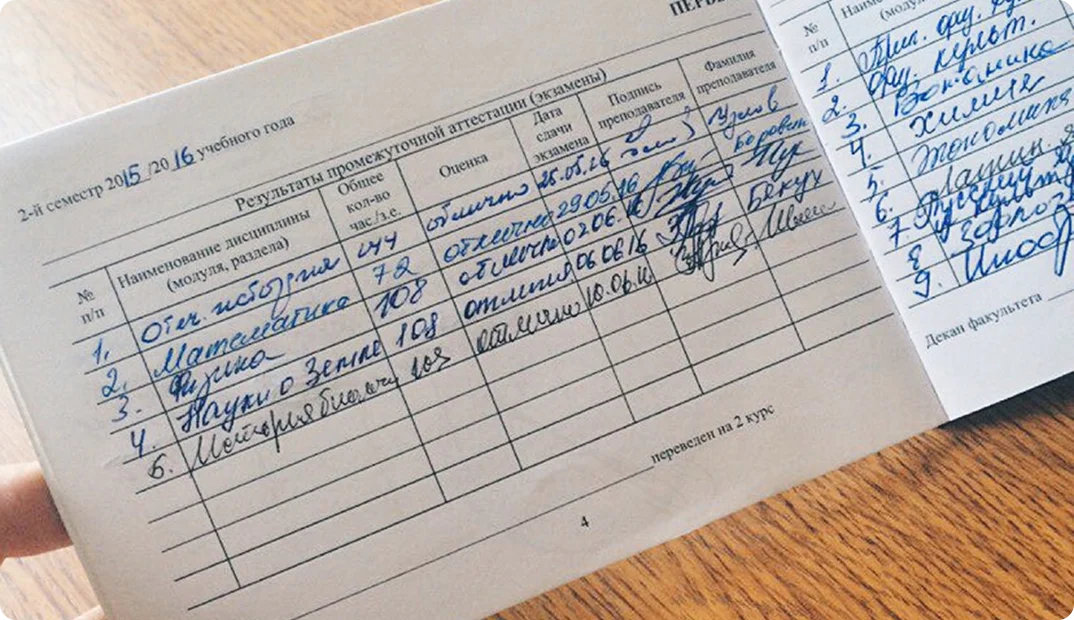 2-й семестр 2015/2016 учебного года
Результаты промежуточной аттестации (экзамены)
№ п/п Наименование дисциплины (модуля, раздела) Общее кол-во час./з.е. Оценка Дата сдачи экзамена Подпись преподавателя Фамилия преподавателя
1. Отеч. история 144 отлично 25.05.16 Узлов
2. Математика 72 отлично 29.05.16
3. Физика 108 отлично 02.06.16
4. Науки о Земле 108 отлично 06.06.16 Бекух
5. История биологии 108 отлично 10.06.16
переведен на 2 курс
4
ПЕРВ
№ п/п
1.
2. физ. культ.
3. Ботаника
4. Химия
5. Экономика
6. Латин. яз
7. Русский
8
9. Иностр
Декан факультета